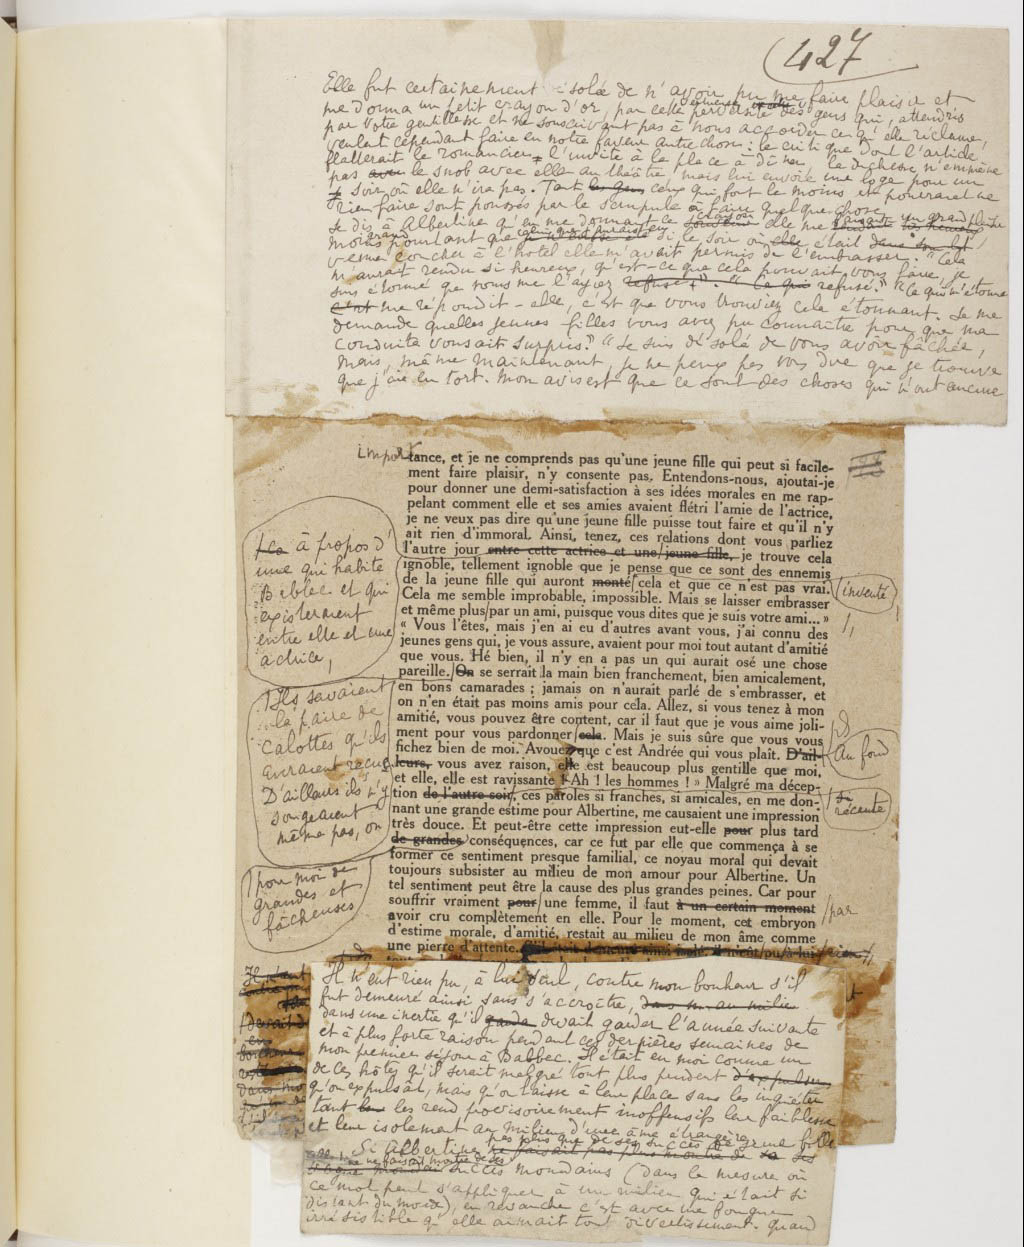 427
Elle fut certainement isolée de n'avoir pu me faire plaisir et
me donna un petit crayon d'or, par cette perverse des gens qui, attendris
par votre gentillesse et ne souscrivant pas à nous accorder ce qu'elle réclame,
veulent cependant faire en notre faveur autre chose : le critique dont l'article
flatterait le romancier l'invite à la place à dîner, la duchesse n'emmène
pas le snob avec elle au théâtre, mais lui envoie une loge pour un
soir où elle n'ira pas. Tant les gens ceux qui font le moins et pourraient ne
rien faire sont poussés par le scrupule à faire quelque chose.
Je dis à Albertine qu'en me donnant ce crayon elle me un grand plaisir
moins grand pourtant que si le soir où elle était
venue coucher à l'hôtel elle m'avait permis de l'embrasser. "Cela
m'aurait rendu si heureux, qu'est-ce que cela pouvait vous faire, je
suis étonné que vous me l'ayez refusé." "Ce qui m'étonne
c'est me répondit-elle, c'est que vous trouviez cela étonnant. Je me
demande quelles jeunes filles vous avez pu connaître pour que ma
conduite vous ait surpris." "Je suis désolé de vous avoir fâchée,
mais, même maintenant, je ne peux pas vous dire que je trouve
que j'aie eu tort. Mon avis est que ce sont des choses qui n'ont aucune
importance, et je ne comprends pas qu'une jeune fille qui peut si facile-
ment faire plaisir, n'y consente pas. Entendons-nous, ajoutai-je
pour donner une demi-satisfaction à ses idées morales en me rap-
pelant comment elle et ses amies avaient flétri l'amie de l'actrice,
je ne veux pas dire qu'une jeune fille puisse tout faire et qu'il n'y
ait rien d'immoral. Ainsi, tenez, ces relations dont vous parliez
l'autre jour entre cette actrice et une jeune fille, je trouve cela
ignoble, tellement ignoble que je pense que ce sont des ennemis
de la jeune fille qui auront monté cela et que ce n'est pas vrai.
Cela me semble improbable, impossible. Mais se laisser embrasser
et même plus par un ami, puisque vous dites que je suis votre ami... »
« Vous l'êtes, mais j'en ai eu d'autres avant vous, j'ai connu des
jeunes gens qui, je vous assure, avaient pour moi tout autant d'amitié
que vous. Hé bien, il n'y en a pas un qui aurait osé une chose
pareille. On se serrait la main bien franchement, bien amicalement,
en bons camarades ; jamais on n'aurait parlé de s'embrasser, et
on n'en était pas moins amis pour cela. Allez, si vous tenez à mon
amitié, vous pouvez être content, car il faut que je vous aime joli-
ment pour vous pardonner cela. Mais je suis sûre que vous vous
fichez bien de moi. Avouez que c'est Andrée qui vous plaît. D'ail-
leurs, vous avez raison, elle est beaucoup plus gentille que moi,
et elle, elle est ravissante ! Ah ! les hommes ! » Malgré ma décep-
tion de l'autre soir, ces paroles si franches, si amicales, en me don-
nant une grande estime pour Albertine, me causaient une impression
très douce. Et peut-être cette impression eut-elle pour plus tard
de grandes conséquences, car ce fut par elle que commença à se
former ce sentiment presque familial, ce noyau moral qui devait
toujours subsister au milieu de mon amour pour Albertine. Un
tel sentiment peut être la cause des plus grandes peines. Car pour
souffrir vraiment pour une femme, il faut à un certain moment
avoir cru complètement en elle. Pour le moment, cet embryon
d'estime morale, d'amitié, restait au milieu de mon âme comme
une pierre d'attente.
à propos d'
une qui habite
Balbec et qui
existeraient
entre elle et une
actrice,
Ils savaient
la paire de
calottes qu'ils
auraient reçue
D'ailleurs ils n'y
songeaient
même pas, on
pour moi de
grandes et
fâcheuses
inventé
Au fond
récente
par
Il n'eut rien pu, à lui seul, contre mon bonheur s'il
fut demeuré ainsi sans s'accroître, dans au milieu
dans une inertie qu'il garda devait garder l'année suivante
et à plus forte raison pendant ces dernières semaines de
mon premier séjour à Balbec. Il était en moi comme un
de ces hôtes qu'il serait malgré tout plus prudent d'expulser
qu'on expulsât, mais qu'on laisse à leur place sans les inquiéter
tant les rend provisoirement inoffensifs leur faiblesse
et leur isolement au milieu d'une âme étrangère
Si Albertine
succès mondains (dans la mesure où
ce mot peut s'appliquer à un milieu qui était si
distant du monde), en revanche c'est avec une fougue
irrésistible qu'elle aimait tout divertissement. quand